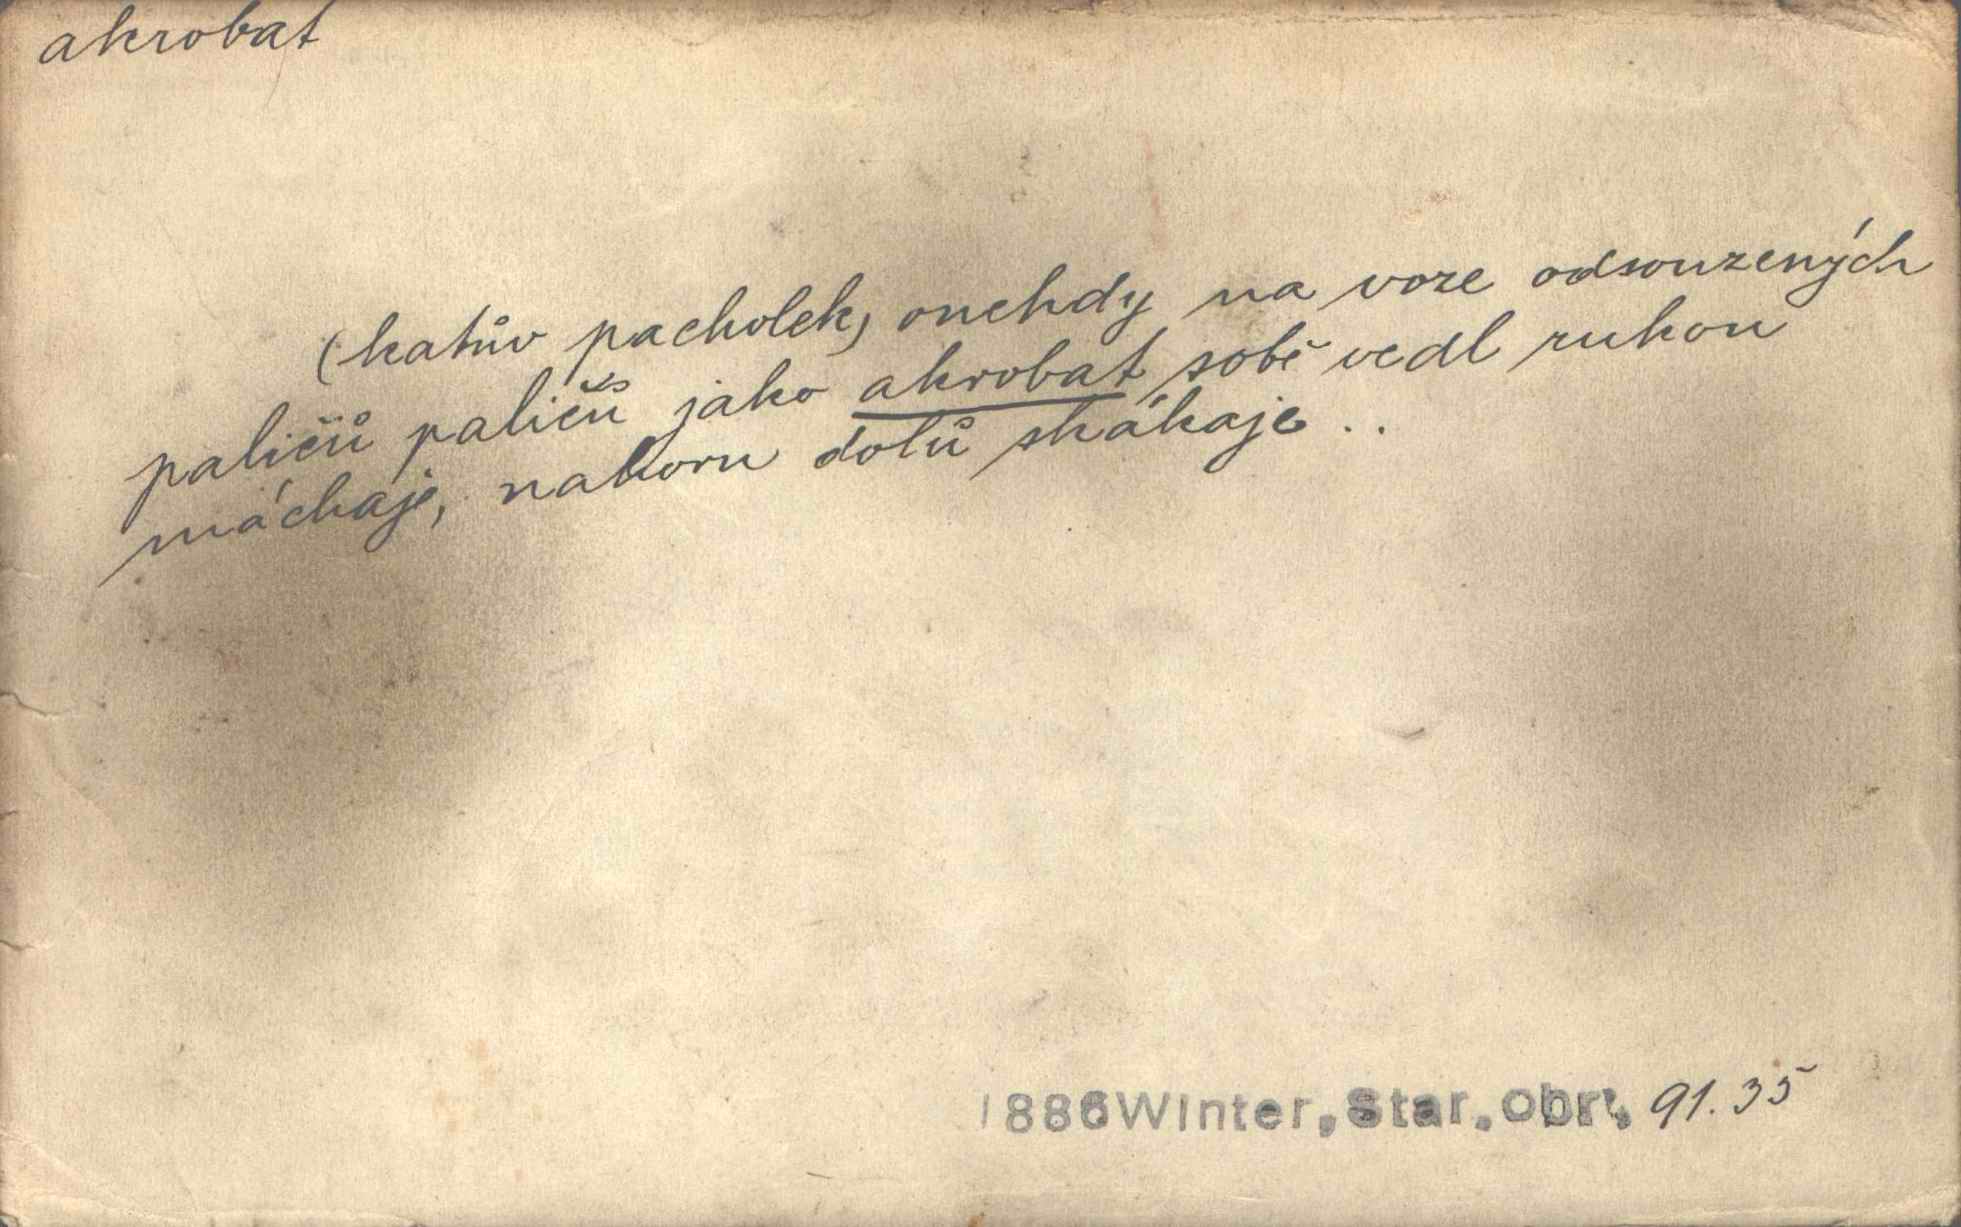 akrobat
(katův pacholek) onehdy na voze odsouzených
paličů paličů jako akrobat sobě vedl rukou
máchaje, nahoru dolů skákaje..
1886 Winter, Star. obr., 91.35